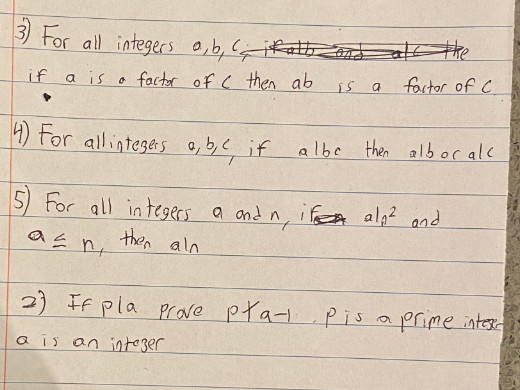 3) For all integers a,b,c,
if a is a factor of c then ab is a factor of c
4) For all integers a,b,c, if a|bc then a|b or a|c
5) For all integers a and n, if a|n² and
a ≤ n, then a|n
2) If p|a prove p∤a-1. p is a prime integer
a is an integer